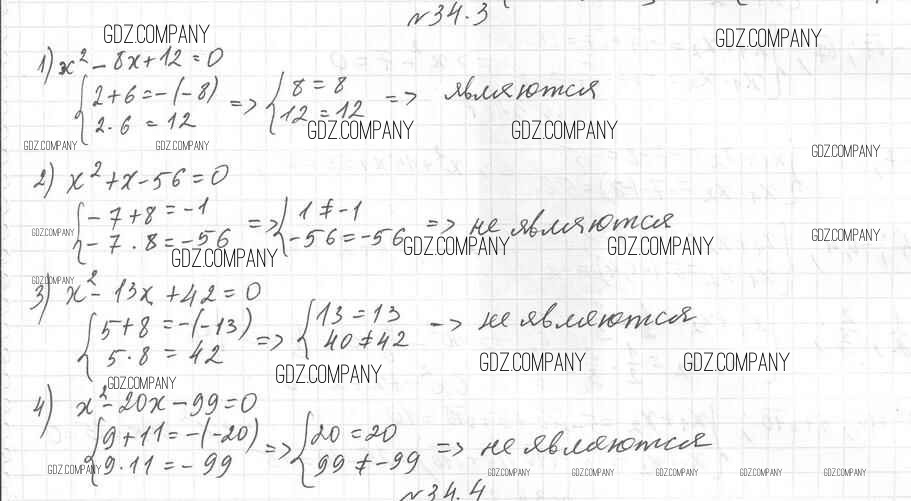 №34.3
GDZ.COMPANY GDZ.COMPANY
1) x² - 8x + 12 = 0
{ 2 + 6 = -(-8) => { 8 = 8 => являются
2 · 6 = 12 12 = 12
GDZ.COMPANY GDZ.COMPANY
GDZ.COMPANY GDZ.COMPANY GDZ.COMPANY
2) x² + x - 56 = 0
{ -7 + 8 = -1 => { 1 ≠ -1 => не являются
-7 · 8 = -56 -56 = -56
GDZ.COMPANY GDZ.COMPANY
GDZ.COMPANY GDZ.COMPANY GDZ.COMPANY
GDZ.COMPANY
3) x² - 13x + 42 = 0
{ 5 + 8 = -(-13) => { 13 = 13 -> не являются
5 · 8 = 42 40 ≠ 42
GDZ.COMPANY GDZ.COMPANY GDZ.COMPANY GDZ.COMPANY
4) x² - 20x - 99 = 0
{ 9 + 11 = -(-20) => { 20 = 20 => не являются
9 · 11 = -99 99 ≠ -99
GDZ.COMPANY GDZ.COMPANY GDZ.COMPANY GDZ.COMPANY GDZ.COMPANY GDZ.COMPANY
№34.4